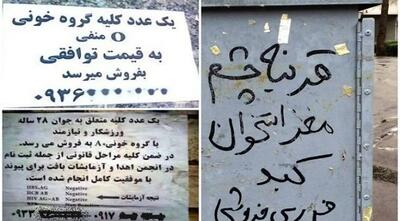 یک عدد کلیه گروه خونی
O منفی
به قیمت توافقی
بفروش میرسد
۰۹۳۶
یک عدد کلیه متعلق به جوان ۲۸ ساله
ورزشکار و نیازمند
با گروه خونی A، به فروش می رسد.
در ضمن کلیه مراحل قانونی از جمله ثبت نام
در انجمن اهدا و آزمایشات بافت برای پیوند
با موفقیت کامل انجام شده است.
نتیجه آزمایشات
HBS.AG Negative
HCB AB Negative
HIV AG-AB Negative
۰۹۱۷
قرنیه چشم
مغز استخوان
کبد
فوری فروشی